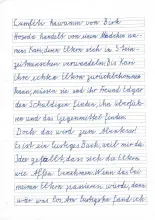 Lumfelt hawamm von Dirk
Hoseda handelt von einem Mädchen na-
mens Kari, deren Eltern sich in Stein-
zeitmenschen verwandeln. Die Kari
ihre echten Eltern zurückbekommen
kann, müssen sie und ihr Freund Edgar
den Schuldigen finden, ihn überfüh-
ren und das Gegenmittel finden.
Doch das wird zum Abenteuer!
Es ist ein lustiges Buch, weil mir da-
ran gefällt, dass sich die Eltern
wie Affen benehmen. Wenn das bei
meinen Eltern passieren würde, dann
wäre was los. Am lustigsten fand ich